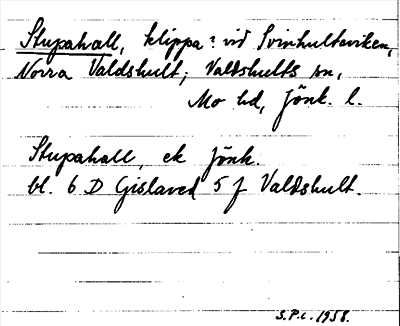 Stupahall, klippa? vid Svinhultaviken,
Norra Valdshult; Valdshults sn,
Mo hd, Jönk. l.
Stupahall, ek Jönk.
bl. 6 D Gislaved 5 f Valdshult.
S.P.C. 1958.